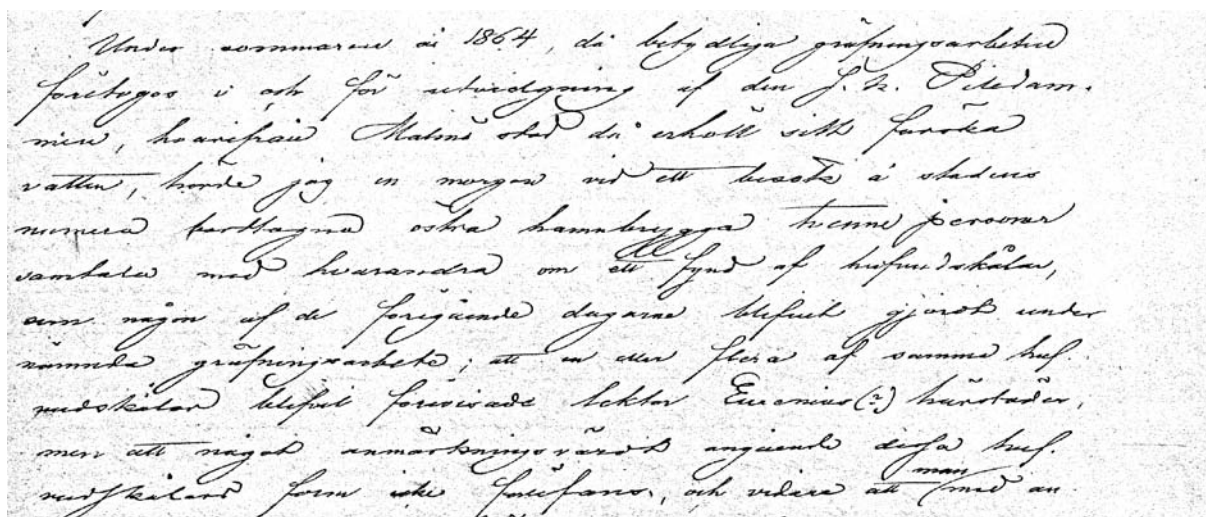 Under sommaren år 1864, då betydliga gräfningsarbeten
företogos i och för utvidgning af den s. k. Piledam-
men, hvarifrån Malmö stad då erhöll sitt färska
vatten, hörde jag en morgon vid ett besök å stadens
numera borttagna östra hamnbrygga tvenne personer
samtala med hvarandra om ett fynd af hufvudskålar,
som någon af de föregående dagarne blifvit gjordt under
nämnda gräfningsarbete; att en eller flera af samma huf-
vudskålar blifvit förevisade lektor Eurenius (?) härstädes,
men att något anmärkningsvärdt angående dessa huf-
vudskålars form icke förefans, och vidare att man med an-